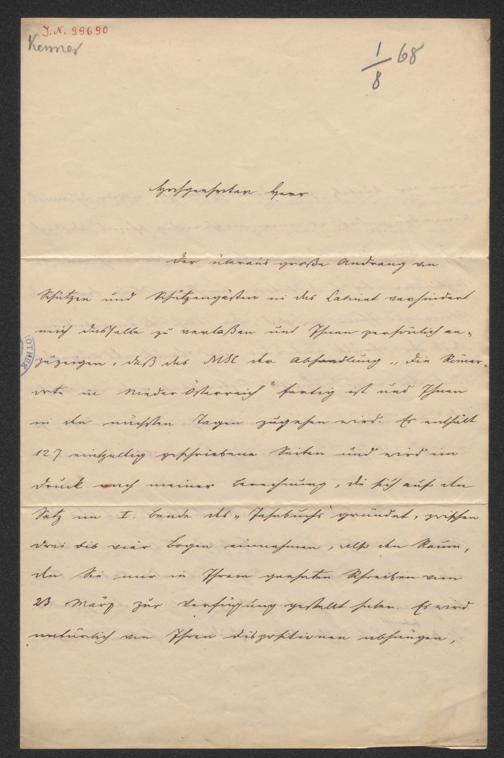 J. N. 99690
Kenner
1/8 68
Hochgeehrter Herr
Der überaus große Andrang von
Schützen und Schützengästen in das Cabinet verhindert
mich dasselbe zu verlaßen und Ihnen persönlich an-
zuzeigen, daß das MSC der Abhandlung „die Römer-
orte in Nieder Österreich“ fertig ist und Ihnen
in den nächsten Tagen zugehen wird. Es enthält
127 einhalbig geschriebene Seiten und wird im
Druck nach meiner Berechnung, die sich auf den
Satz im I. Bande des „Jahrbuchs“ gründet, zwischen
drei bis vier Bogen einnehmen, also den Raum,
den Sie mir in Ihrem geehrten Schreiben vom
23 März zur Verfügung gestellt haben. Es wird
natürlich von Ihren Dispositionen abhängen,